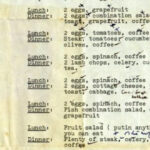 Lunch: 2 eggs, grapefruit, coffee
Dinner: 2 eggs, combination salad
toast, grapefruit, coffee
Lunch: 2 eggs, tomatoes, coffee
Dinner: Steak, tomatoes, cucumbe
olives, coffee
Lunch: 2 eggs, spinach, coffee
Dinner: 2 lamb chops, celery, cu
tea.
Lunch: 2 eggs, spinach, coffee
Dinner: 2 eggs, cottage cheese,
toast, cabbage.
Lunch: 2 eggs, spinach, coffee
Dinner: Fish combination salad,
grapefruit
Lunch: Fruit salad ( putin anyt
you can eat
Dinner: of steak, celery,
coffee